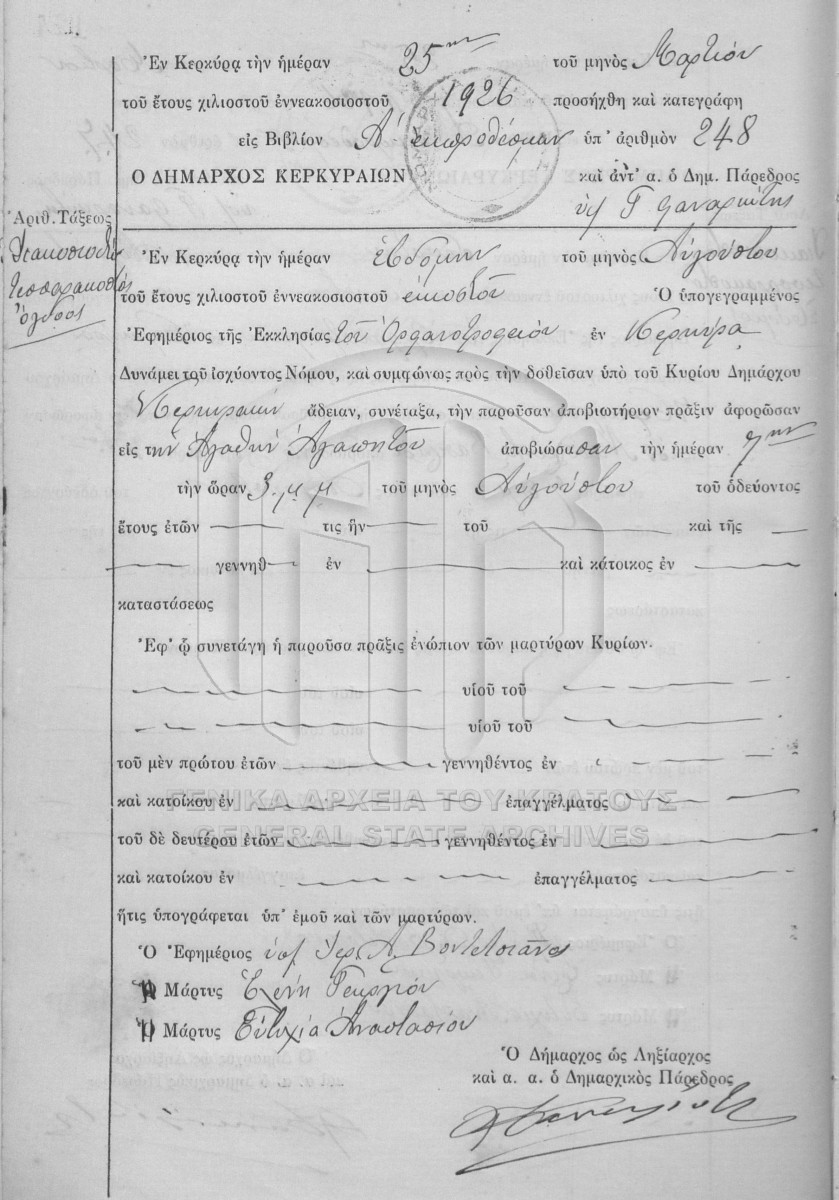 Ἐν Κερκύρᾳ τὴν ἡμέραν 25ην τοῦ μηνὸς Μαρτίου
τοῦ ἔτους χιλιοστοῦ ἐννεακοσιοστοῦ 1926 προσήχθη καὶ κατεγράφη
εἰς Βιβλίον Α ἐκπροθέσμων ὑπ' ἀριθμὸν 248
Ο ΔΗΜΑΡΧΟΣ ΚΕΡΚΥΡΑΙΩΝ καὶ ἀντ' α. ὁ Δημ. Πάρεδρος
Ἀριθ. Τάξεως
Διακοσιοστὸς
τεσσαρακοστὸς
ὄγδοος
Ἐν Κερκύρᾳ τὴν ἡμέραν ἑβδόμην τοῦ μηνὸς Αὐγούστου
τοῦ ἔτους χιλιοστοῦ ἐννεακοσιοστοῦ εἰκοστοῦ Ὁ ὑπογεγραμμένος
Ἐφημέριος τῆς Ἐκκλησίας τοῦ Ὀρφανοτροφείου ἐν Κερκύρᾳ
Δυνάμει τοῦ ἰσχύοντος Νόμου, καὶ συμφώνως πρὸς τὴν δοθεῖσαν ὑπὸ τοῦ Κυρίου Δημάρχου
Κερκυραίων ἄδειαν, συνέταξα, τὴν παροῦσαν ἀποβιωτήριον πρᾶξιν ἀφορῶσαν
εἰς τὴν Ἀγαθὴν Ἀγαπητοῦ ἀποβιώσασαν τὴν ἡμέραν 7ην
τὴν ὥραν 3 μ μ τοῦ μηνὸς Αὐγούστου τοῦ ὁδεύοντος
ἔτους ἐτῶν τις ἦν τοῦ καὶ τῆς
γεννηθ ἐν καὶ κάτοικος ἐν
καταστάσεως
Ἐφ' ᾧ συνετάγη ἡ παροῦσα πρᾶξις ἐνώπιον τῶν μαρτύρων Κυρίων.
υἱοῦ τοῦ
υἱοῦ τοῦ
τοῦ μὲν πρώτου ἐτῶν γεννηθέντος ἐν
καὶ κατοίκου ἐν ἐπαγγέλματος
ΓΕΝΙΚΑ ΑΡΧΕΙΑ ΤΟΥ ΚΡΑΤΟΥΣ
GENERAL STATE ARCHIVES
τοῦ δὲ δευτέρου ἐτῶν γεννηθέντος ἐν
καὶ κατοίκου ἐν ἐπαγγέλματος
ἥτις ὑπογράφεται ὑπ' ἐμοῦ καὶ τῶν μαρτύρων.
Ὁ Ἐφημέριος
Ἡ Μάρτυς Ἑλένη Γεωργίου
Ἡ Μάρτυς Εὐτυχία Ἀναστασίου
Ὁ Δήμαρχος ὡς Ληξίαρχος
καὶ α. α. ὁ Δημαρχικὸς Πάρεδρος